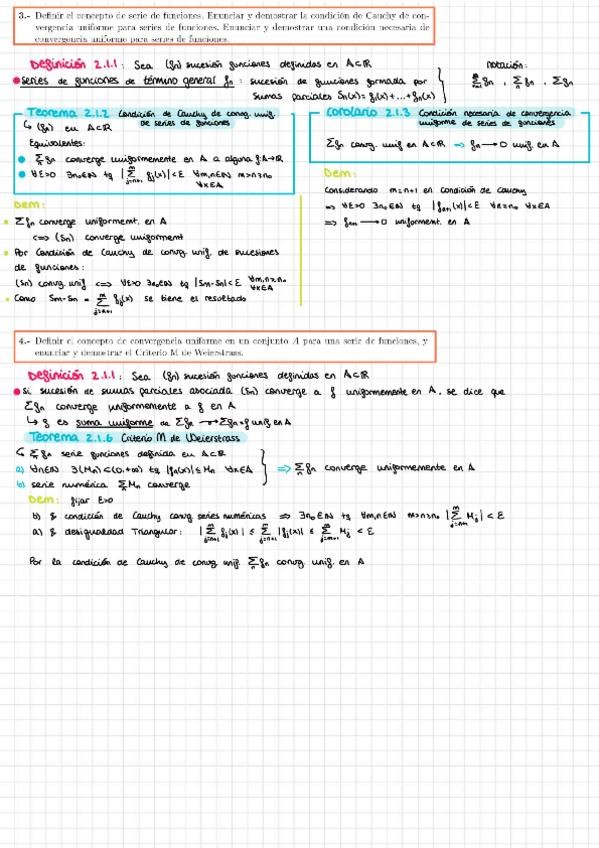 3.- Definir el concepto de serie de funciones. Enunciar y demostrar la condición de Cauchy de con-
vergencia uniforme para series de funciones. Enunciar y demostrar una condición necesaria de
convergencia uniforme para series de funciones.
Definición 2.1.1: Sea (fn) sucesión funciones definidas en A⊂R
notación:
series de funciones de término general fn : sucesión de funciones formada por
sumas parciales Sn(x) = f1(x)+...+fn(x)
∑fn , ∑fn , ∑fn
Teorema 2.1.2 Condición de Cauchy de convg. unif.
de series de funciones
↳ (fn) en A⊂R
Equivalentes:
∑fn converge uniformemente en A a alguna f:A→R
∀ε>0 ∃n0∈N tq |∑ fj(x)|<ε ∀m,n∈N m>n≥n0
∀x∈A
Dem:
∑fn converge uniformemt. en A
⟺ (Sn) converge uniforment
Por Condición de Cauchy de convg. unif. de sucesiones
de funciones:
(Sn) convg. unif ⟺ ∀ε>0 ∃n0∈N tq |Sm-Sn|<ε ∀m,n≥n0
∀x∈A
Como Sm-Sn = ∑ fj(x) se tiene el resultado
Corolario 2.1.3 Condición necesaria de convergencia
uniforme de series de funciones
∑fn convg. unif en A⊂R ⟹ fn→0 unif. en A
Dem:
Considerando m=n+1 en condición de Cauchy
⟹ ∀ε>0 ∃n0∈N tq |fn+1(x)|<ε ∀n≥n0 ∀x∈A
⟹ fn+1→0 uniforment. en A
4.- Definir el concepto de convergencia uniforme en un conjunto A para una serie de funciones, y
enunciar y demostrar el Criterio M de Weierstrass.
Definición 2.1.1: Sea (fn) sucesión funciones definidas en A⊂R
Si sucesión de sumas parciales asociada (Sn) converge a f uniformemente en A, se dice que
∑fn converge uniformemente a f en A
↳ f es suma uniforme de ∑fn → ∑fn=f unif en A
Teorema 2.1.6 Criterio M de Weierstrass
↳ ∑fn serie funciones definida en A⊂R
a) ∀n∈N ∃(Mn)⊂(0,+∞) tq |fn(x)|≤Mn ∀x∈A
⟹ ∑fn converge uniformemente en A
b) serie numérica ∑Mn converge
Dem: fijar ε>0
b) & condición de Cauchy convg series numéricas ⟹ ∃n0∈N tq ∀m,n∈N m>n≥n0 |∑ Mj|<ε
a) & desigualdad Triangular: |∑ fj(x)| ≤ ∑ |fj(x)| ≤ ∑ Mj < ε
Por la condición de Cauchy de convg unif. ∑fn convg. unif. en A